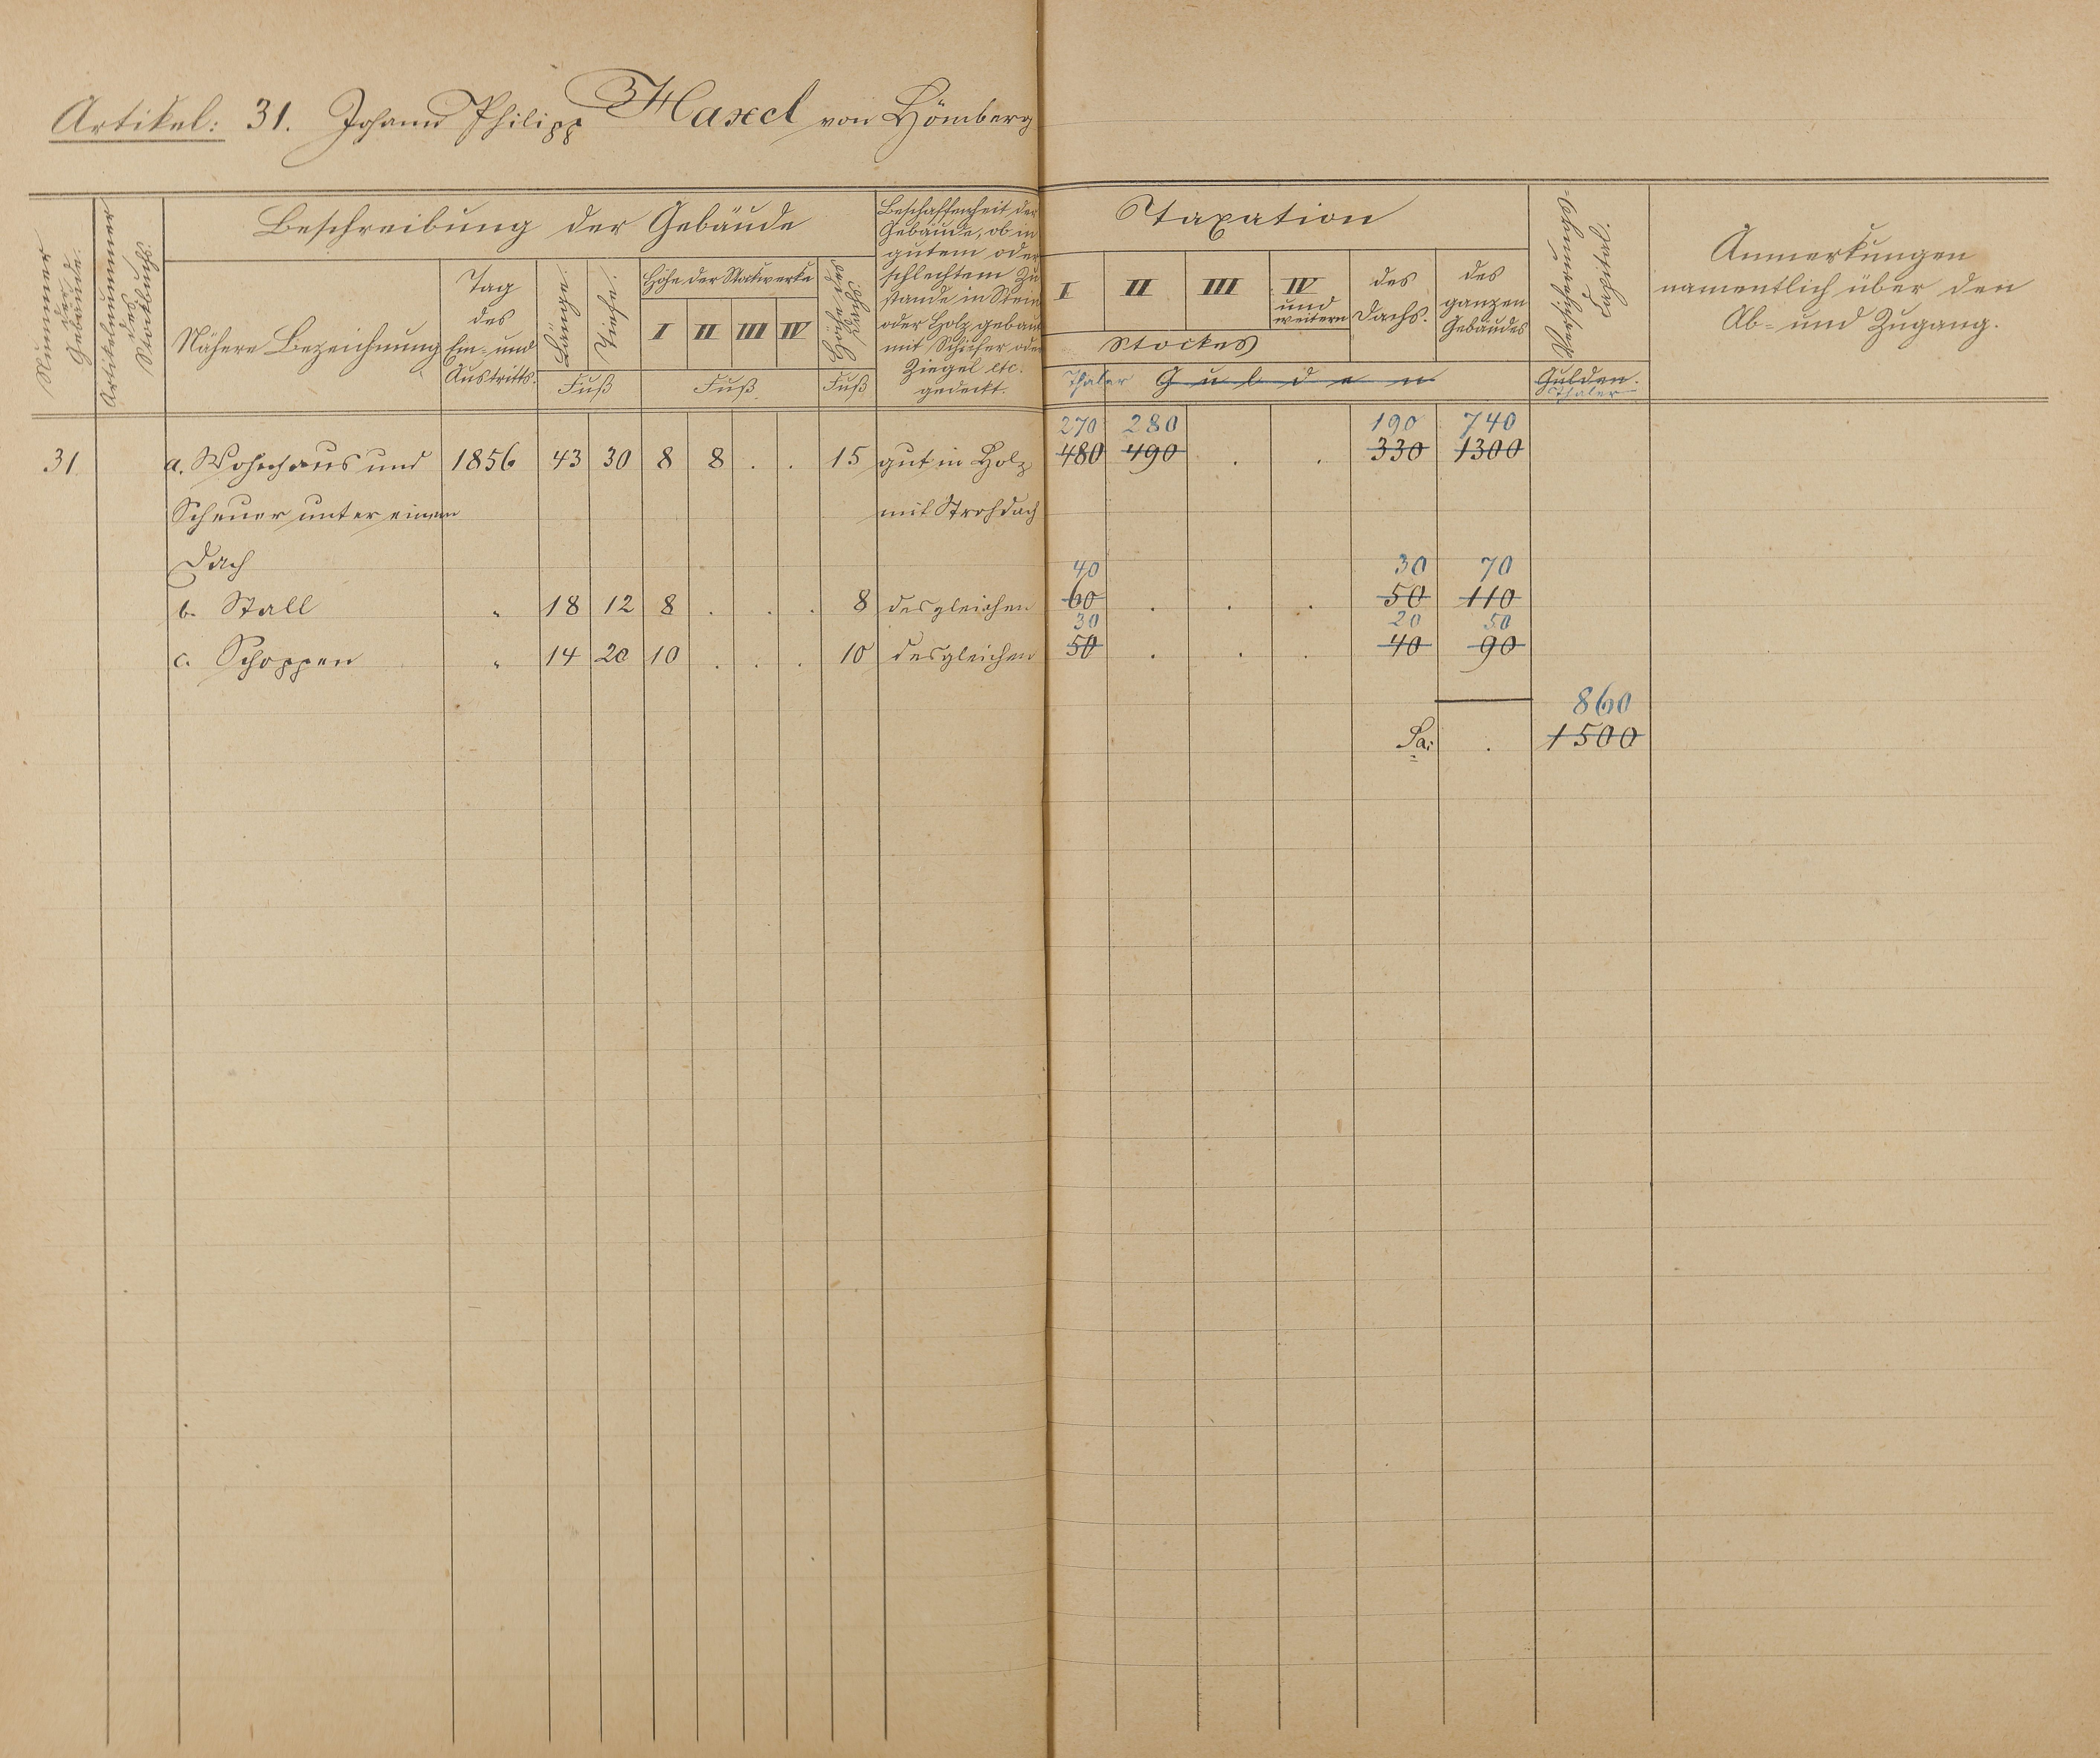 Artikel: 31. Johann Philipp Haxel von Hömberg
Nummer der Gebäude.
Artikelnummer des Stockbuchs.
Beschreibung der Gebäude
Nähere Bezeichnung
Tag
des
Ein- und
Austritts.
Länge.
Tiefe.
Fuß
Höhe der Stockwerke
I II III IV
Fuß.
Höhe des Dachs.
Fuß
Beschaffenheit der
Gebäude, ob in
gutem oder
schlechtem Zu
stande in Stein
oder Holz gebaut
mit Schiefer oder
Ziegel etc.
gedeckt.
Taxation
I II III IV
und
weitern
Stockes
des
Dachs.
des
ganzen
Gebäudes
Thaler Gulden
Versicherungs-
Capital.
Gulden.
Thaler
Anmerkungen
namentlich über den
Ab- und Zugang.
270 280 190 740
31 a. Wohnhaus und 1856 43 30 8 8 . . 15 gut in Holz 480 490 . . 330 1300
Scheuer unter einem mit Strohdach
Dach
40 30 70
b. Stall " 18 12 8 . . . 8 desgleichen 60 . . . 50 110
30 20 50
c. Schoppen " 14 20 10 . . . 10 desgleichen 50 . . . 40 90
860
Sa: . 1500